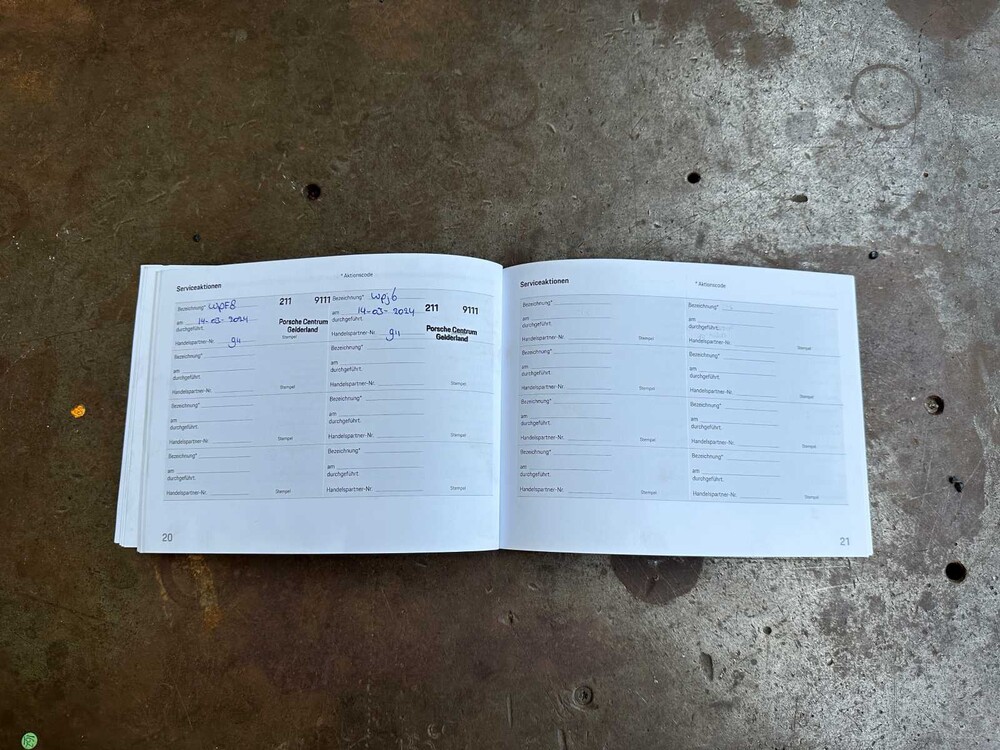 Serviceaktionen
* Aktionscode
Bezeichnung* WPF8
am 14-03-2024
durchgeführt.
Handelspartner-Nr. 911
211 9111
Porsche Centrum
Gelderland
Stempel
Bezeichnung* wpj6
am 14-03-2024
durchgeführt.
Handelspartner-Nr. 911
211 9111
Porsche Centrum
Gelderland
Bezeichnung*
am
durchgeführt.
Handelspartner-Nr.
Stempel
Bezeichnung*
am
durchgeführt.
Handelspartner-Nr.
Stempel
Bezeichnung*
am
durchgeführt.
Handelspartner-Nr.
Stempel
Bezeichnung*
am
durchgeführt.
Handelspartner-Nr.
Stempel
Bezeichnung*
am
durchgeführt.
Handelspartner-Nr.
Stempel
Bezeichnung*
am
durchgeführt.
Handelspartner-Nr.
Stempel
20
Serviceaktionen
* Aktionscode
Bezeichnung*
am
durchgeführt.
Handelspartner-Nr.
Stempel
Bezeichnung*
am
durchgeführt.
Handelspartner-Nr.
Stempel
Bezeichnung*
am
durchgeführt.
Handelspartner-Nr.
Stempel
Bezeichnung*
am
durchgeführt.
Handelspartner-Nr.
Stempel
Bezeichnung*
am
durchgeführt.
Handelspartner-Nr.
Stempel
Bezeichnung*
am
durchgeführt.
Handelspartner-Nr.
Stempel
Bezeichnung*
am
durchgeführt.
Handelspartner-Nr.
Stempel
Bezeichnung*
am
durchgeführt.
Handelspartner-Nr.
Stempel
21